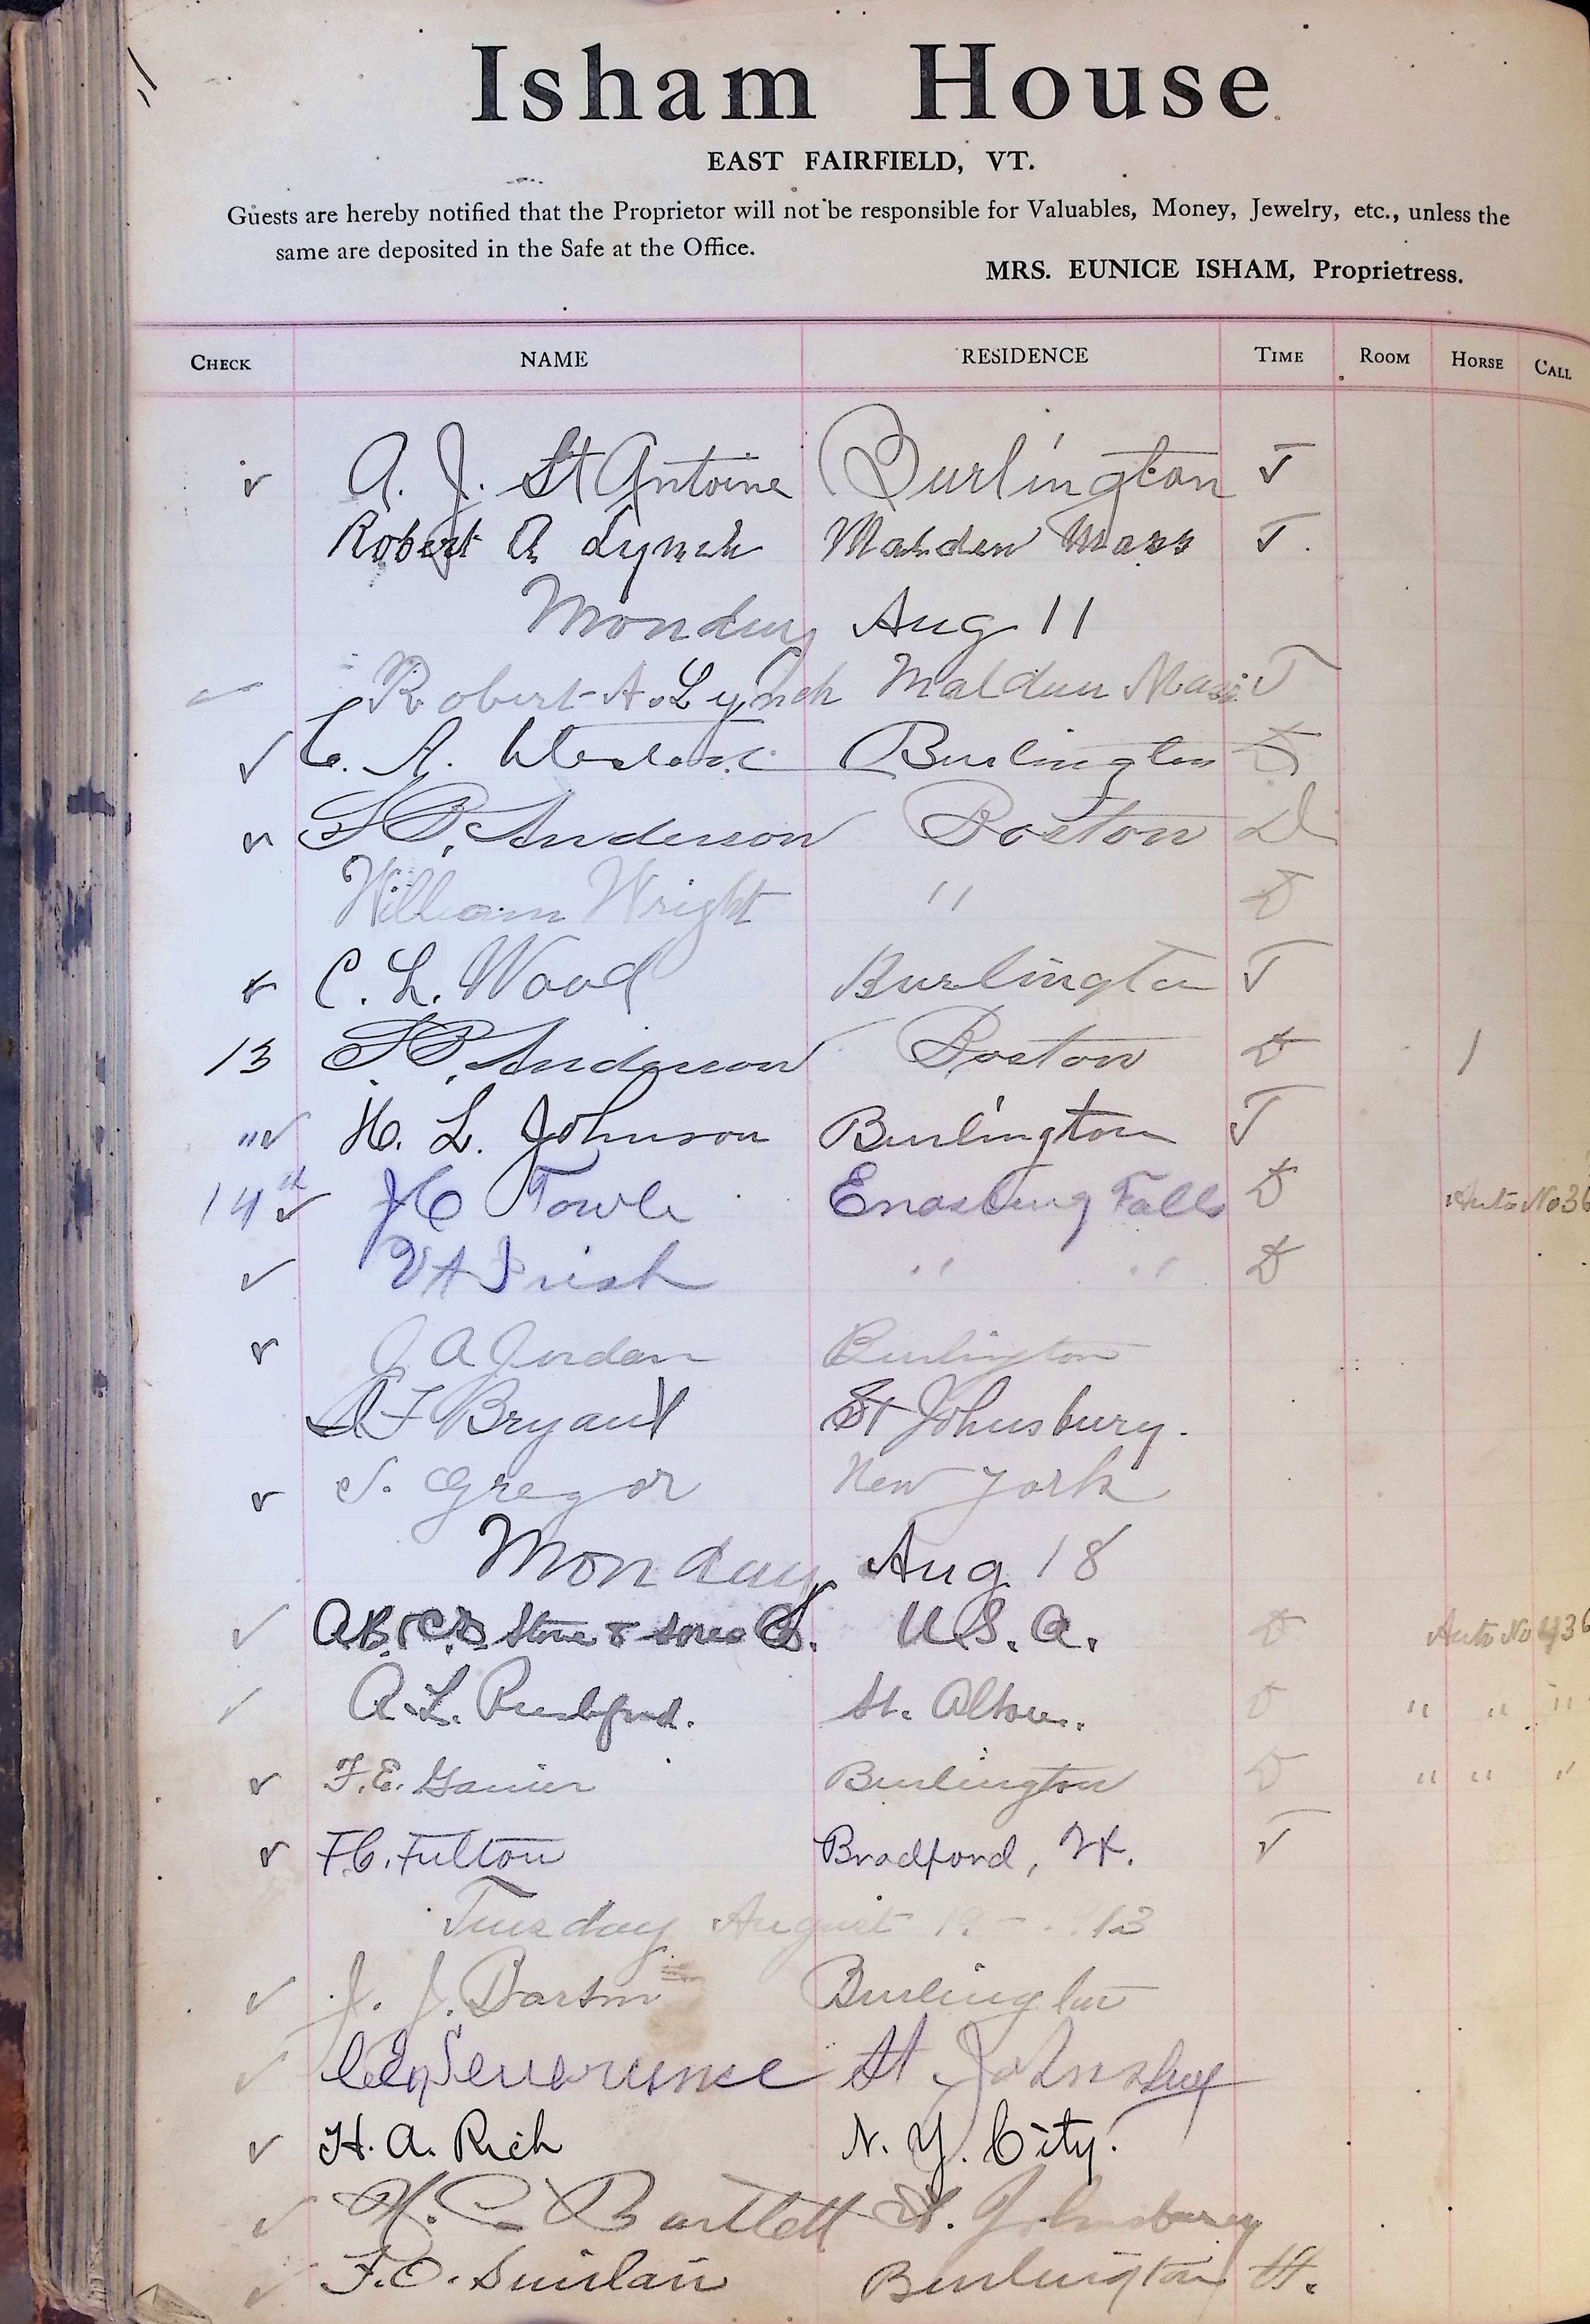 Isham House
EAST FAIRFIELD, VT.
Guests are hereby notified that the Proprietor will not be responsible for Valuables, Money, Jewelry, etc., unless the
same are deposited in the Safe at the Office.
MRS. EUNICE ISHAM, Proprietress.
CHECK NAME RESIDENCE TIME ROOM HORSE CALL
A. J. St Antoine Burlington T
Robert A Lynch Malden Mass T.
Monday Aug 11
Robert A. Lynch Malden Mass T
C. A. Burlington
S B. Anderson Boston D
William Wright " D
C. L. Wood Burlington T
13 S B. Anderson Boston D 1
" H. L. Johnson Burlington T
14th Towle Enosburg Falls D Auto No 36
Irish " " D
J A Jordan Burlington
Bryant St Johnsbury.
S. Gregor New York
Monday Aug 18
U. S. A. D Auto No 436
A. L. St. D " " "
F. E. Burlington D " " "
F. C. Fulton Bradford, Vt. T
Tuesday August 19 - 13
J. J. Barton Burlington
Severance St Johnsbury
H. A. Rich N. Y. City.
Bartlett St. Johnsbury
F. O. Burlington Vt.